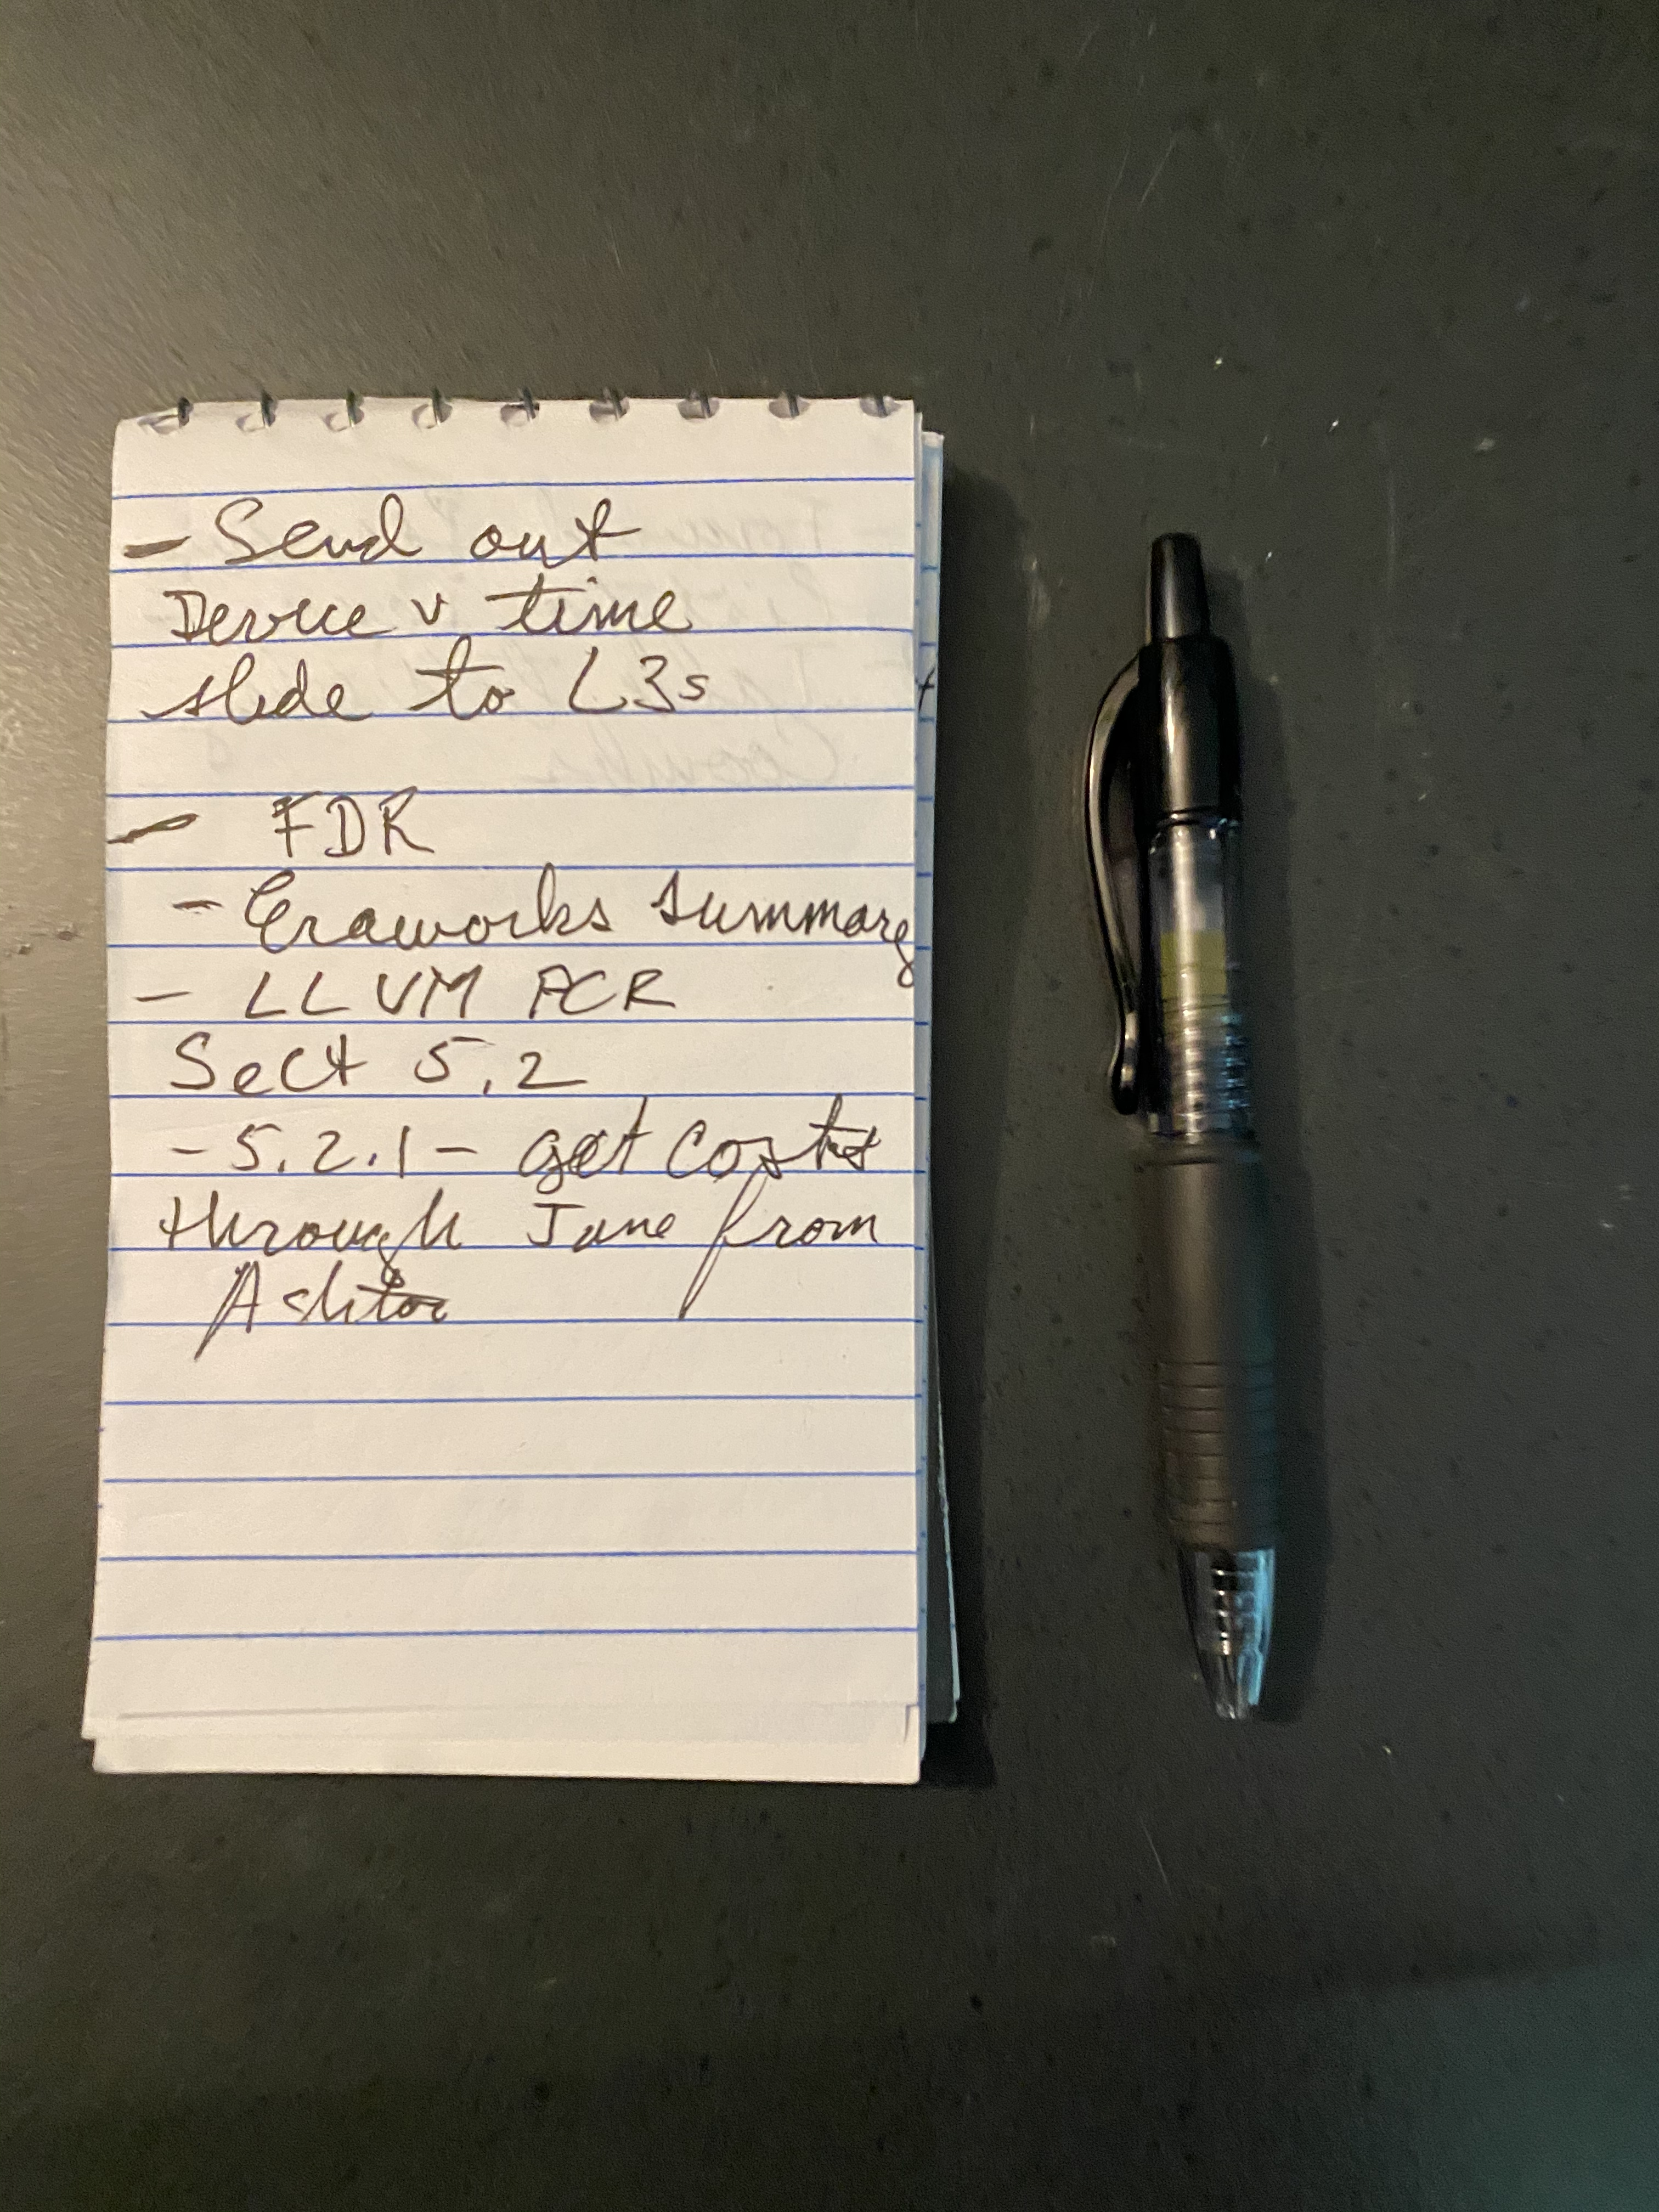 - Send out
Device v time
slide to L3s
- FDR
- Eraworks summary
- LLVM PCR
Sect 5.2
- 5.2.1 - get costs
through June from
Ashton